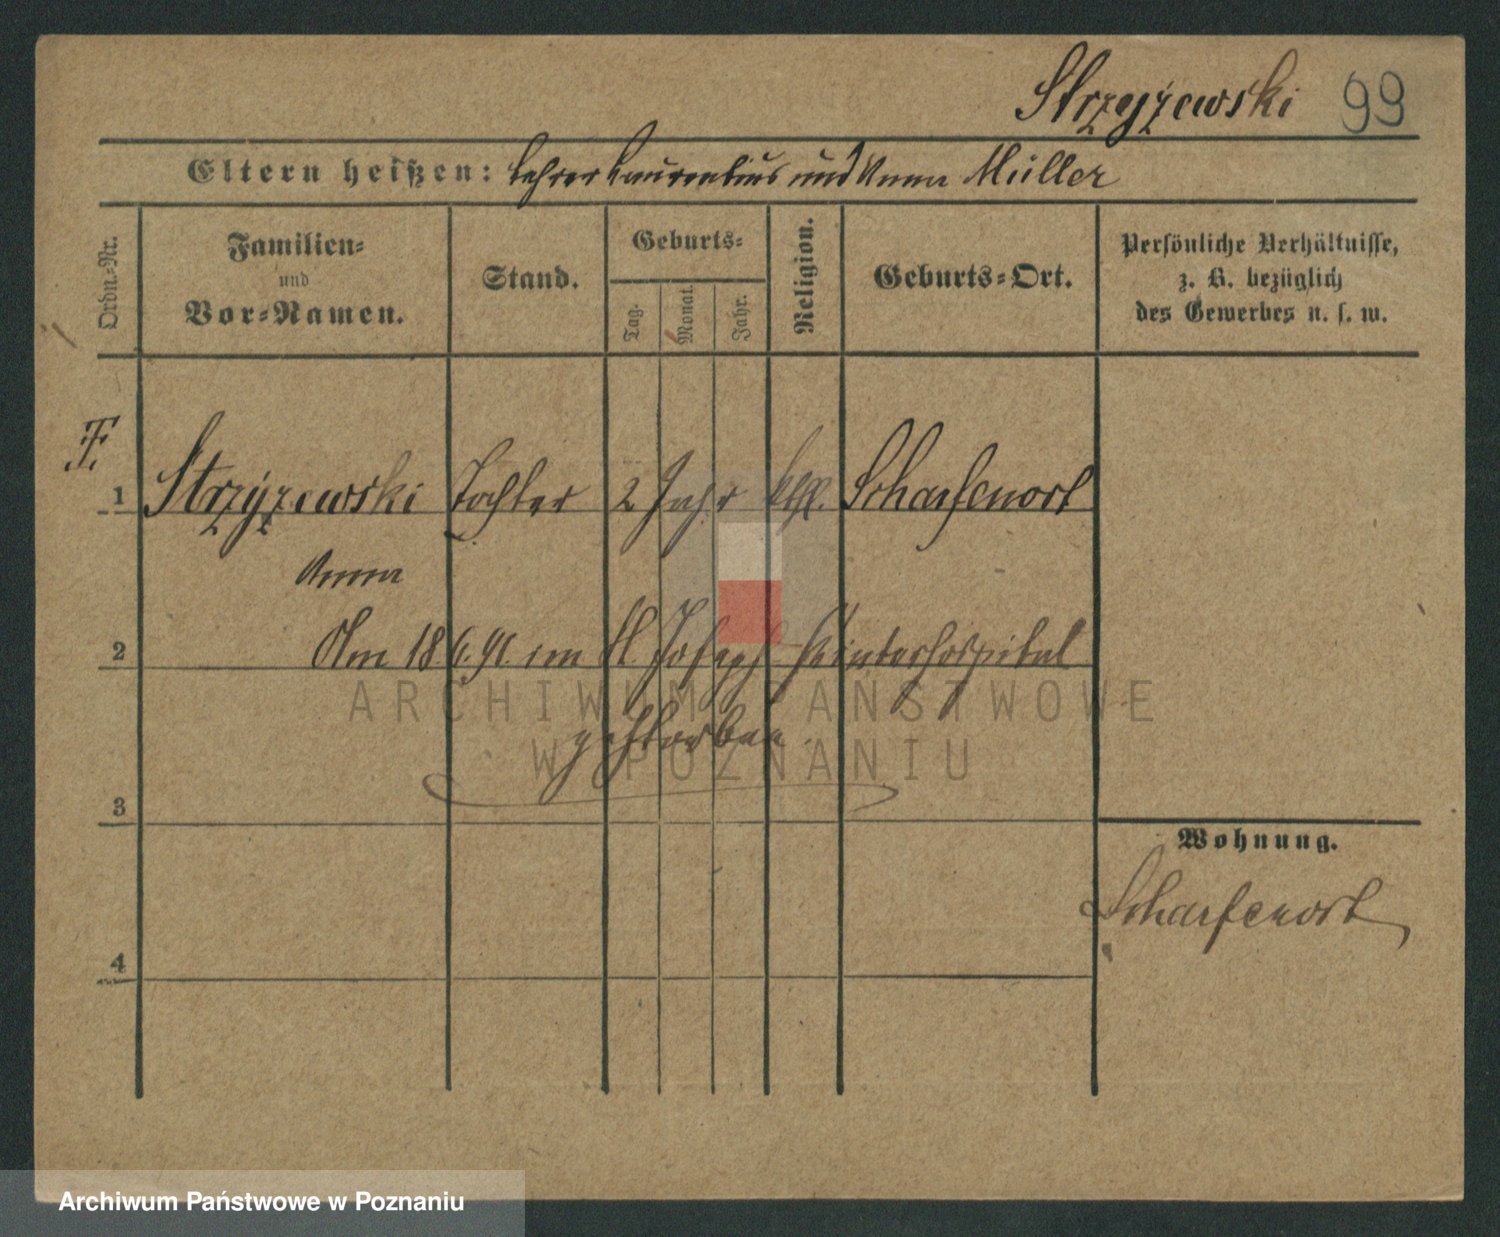 Strzyżewski 99
Eltern heißen: Lehrer Laurentius und Anna Müller
Ordn.-Nr.
Familien-
und
Vor-Namen.
Stand.
Geburts-
Tag.
Monat.
Jahr.
Religion.
Geburts-Ort.
Persönliche Verhältnisse,
z. B. bezüglich
des Gewerbes u. s. w.
1 Strzyżewski Tochter 2 Jahr kth. Scharfenort
Anna
2 Am 18 6. 91. im St. Joseph Kinterhospital
gestorben
3
4
Wohnung.
Scharfenort
ARCHIWUM PAŃSTWOWE
W POZNANIU
Archiwum Państwowe w Poznaniu